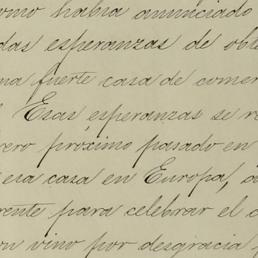 como había anunciado
das esperanzas de obte
na fuerte casa de comer
Esas esperanzas se re
ero próximo pasado en
esa casa en Europa, a
rente para celebrar el c
on vino por desgracia